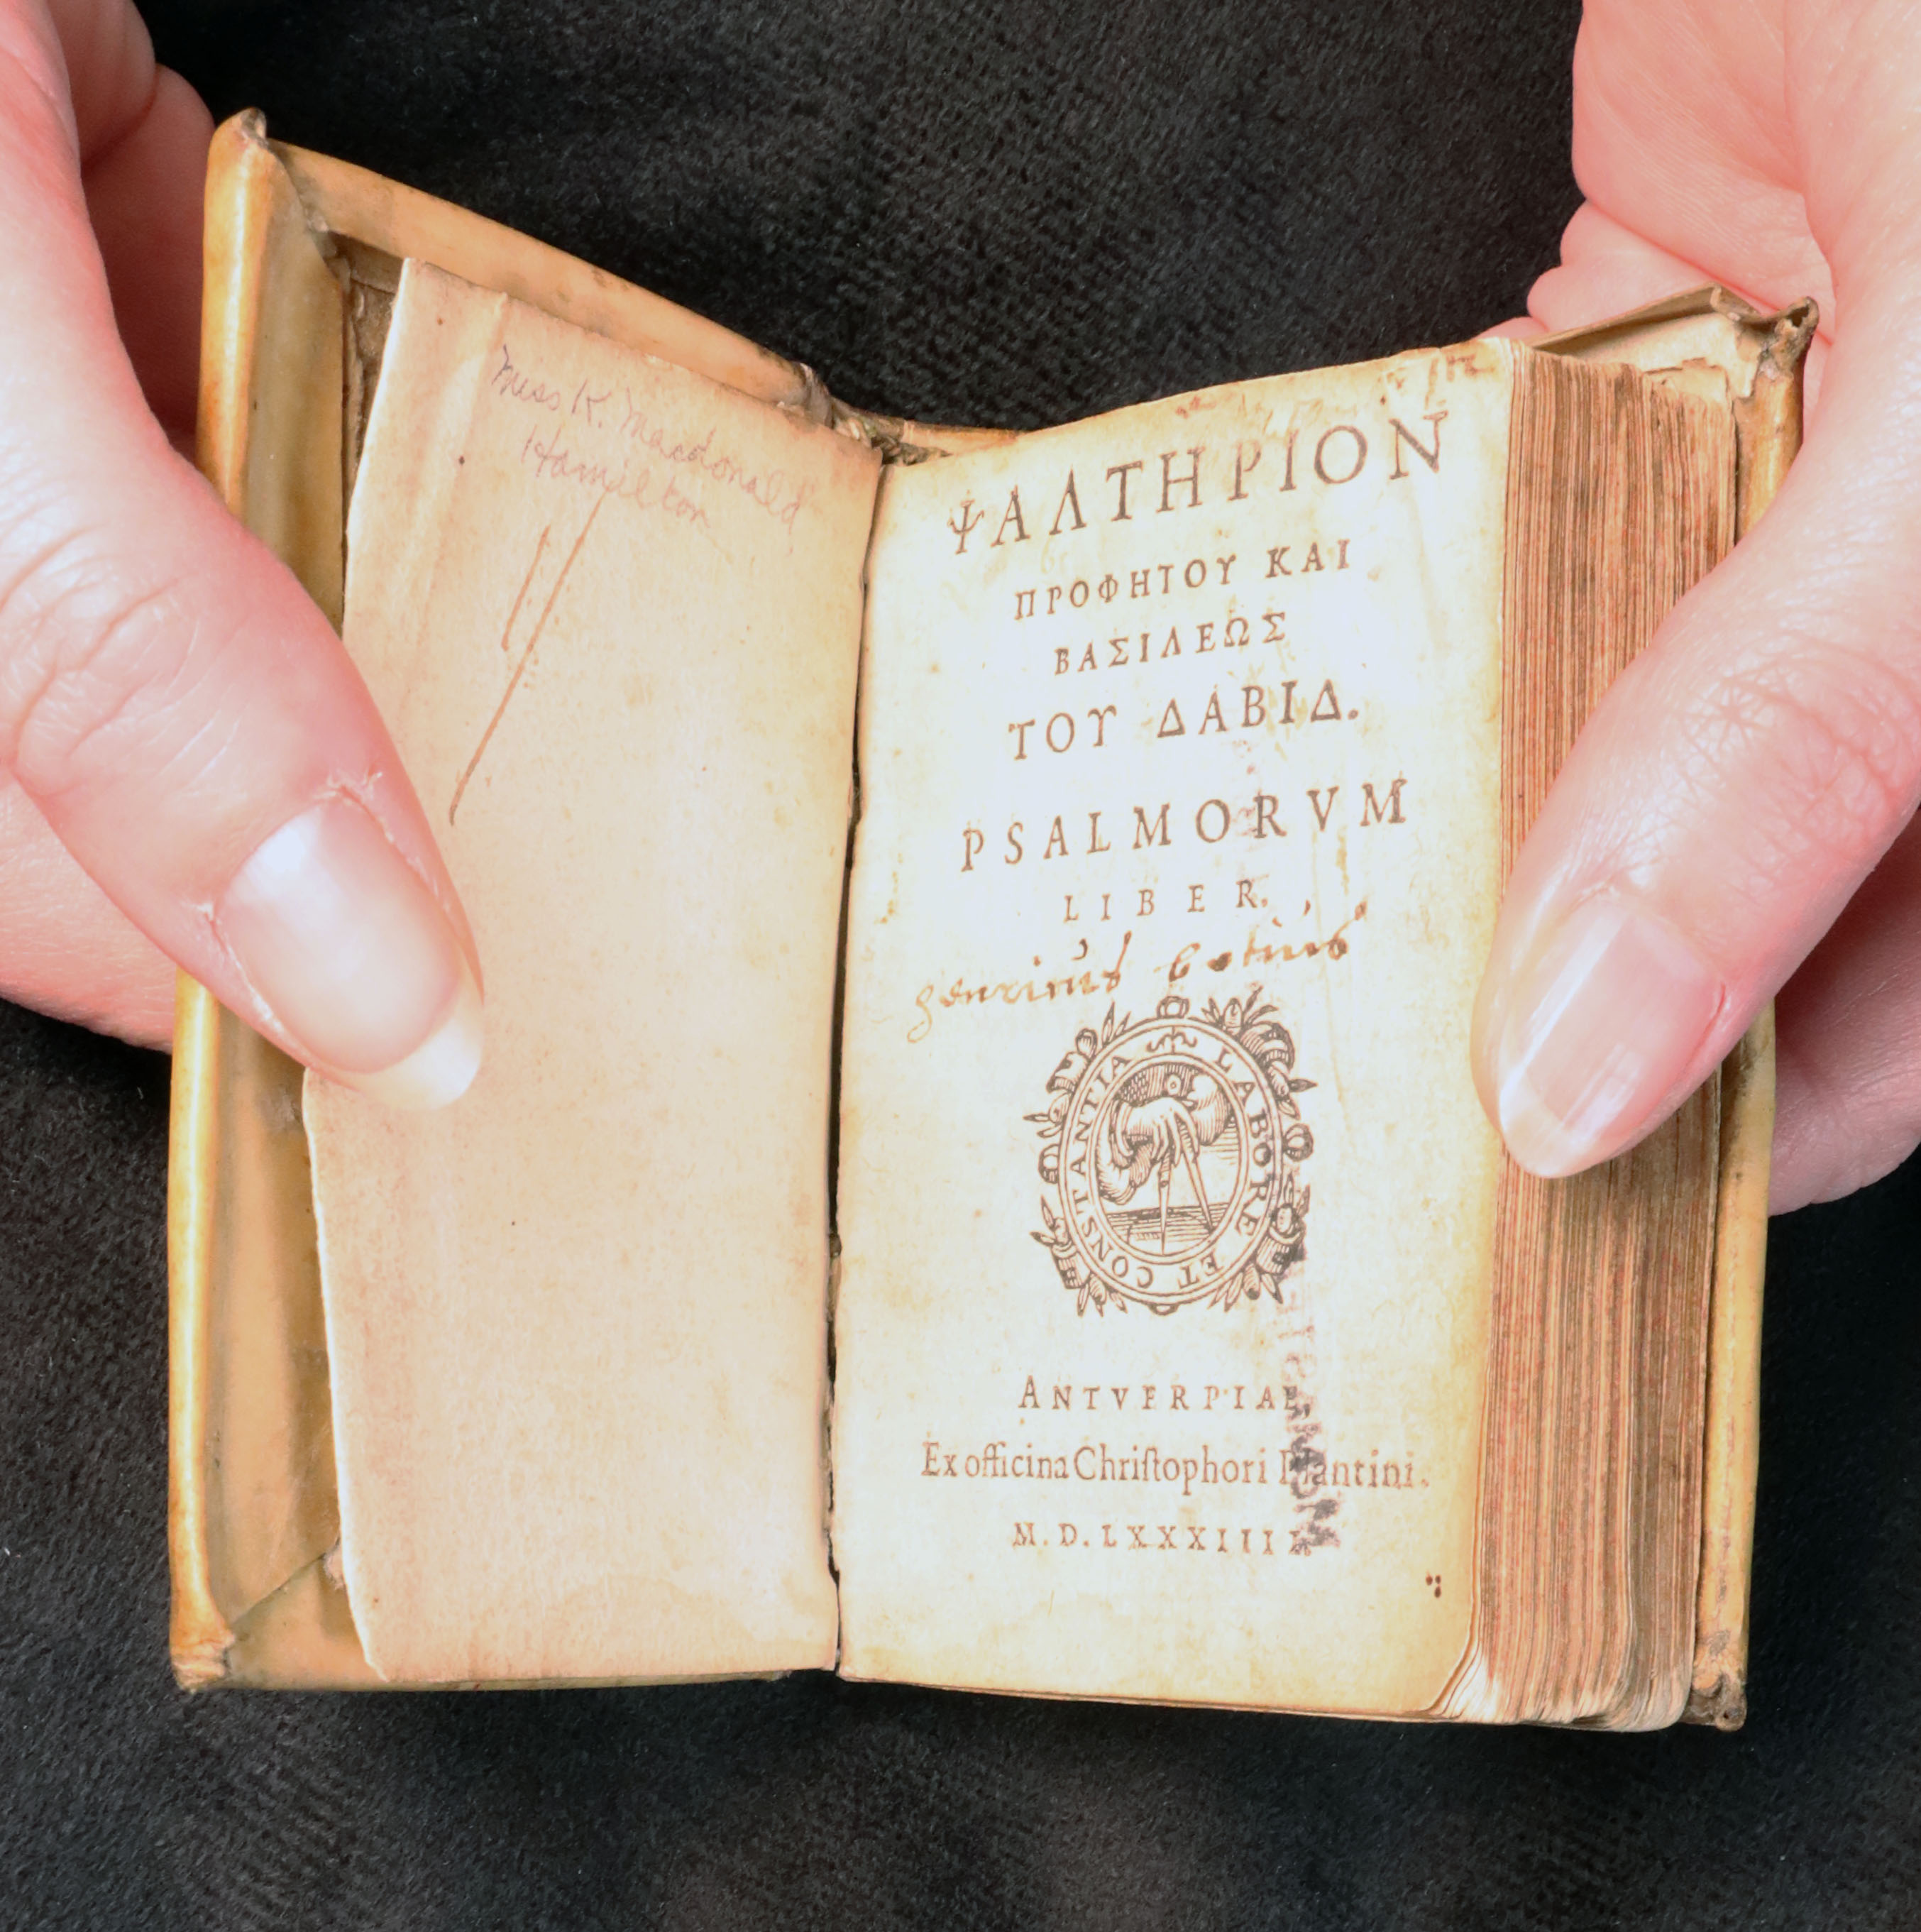 Miss K. Macdonald
Hamilton
ΨΑΛΤΗΡΙΟΝ
ΠΡΟΦΗΤΟΥ ΚΑΙ
ΒΑΣΙΛΕΩΣ
ΤΟΥ ΔΑΒΙΔ.
PSALMORVM
LIBER.
LABORE ET CONSTANTIA
ANTVERPIAE,
Ex officina Chriſtophori Plantini.
M. D. LXXXIIII.